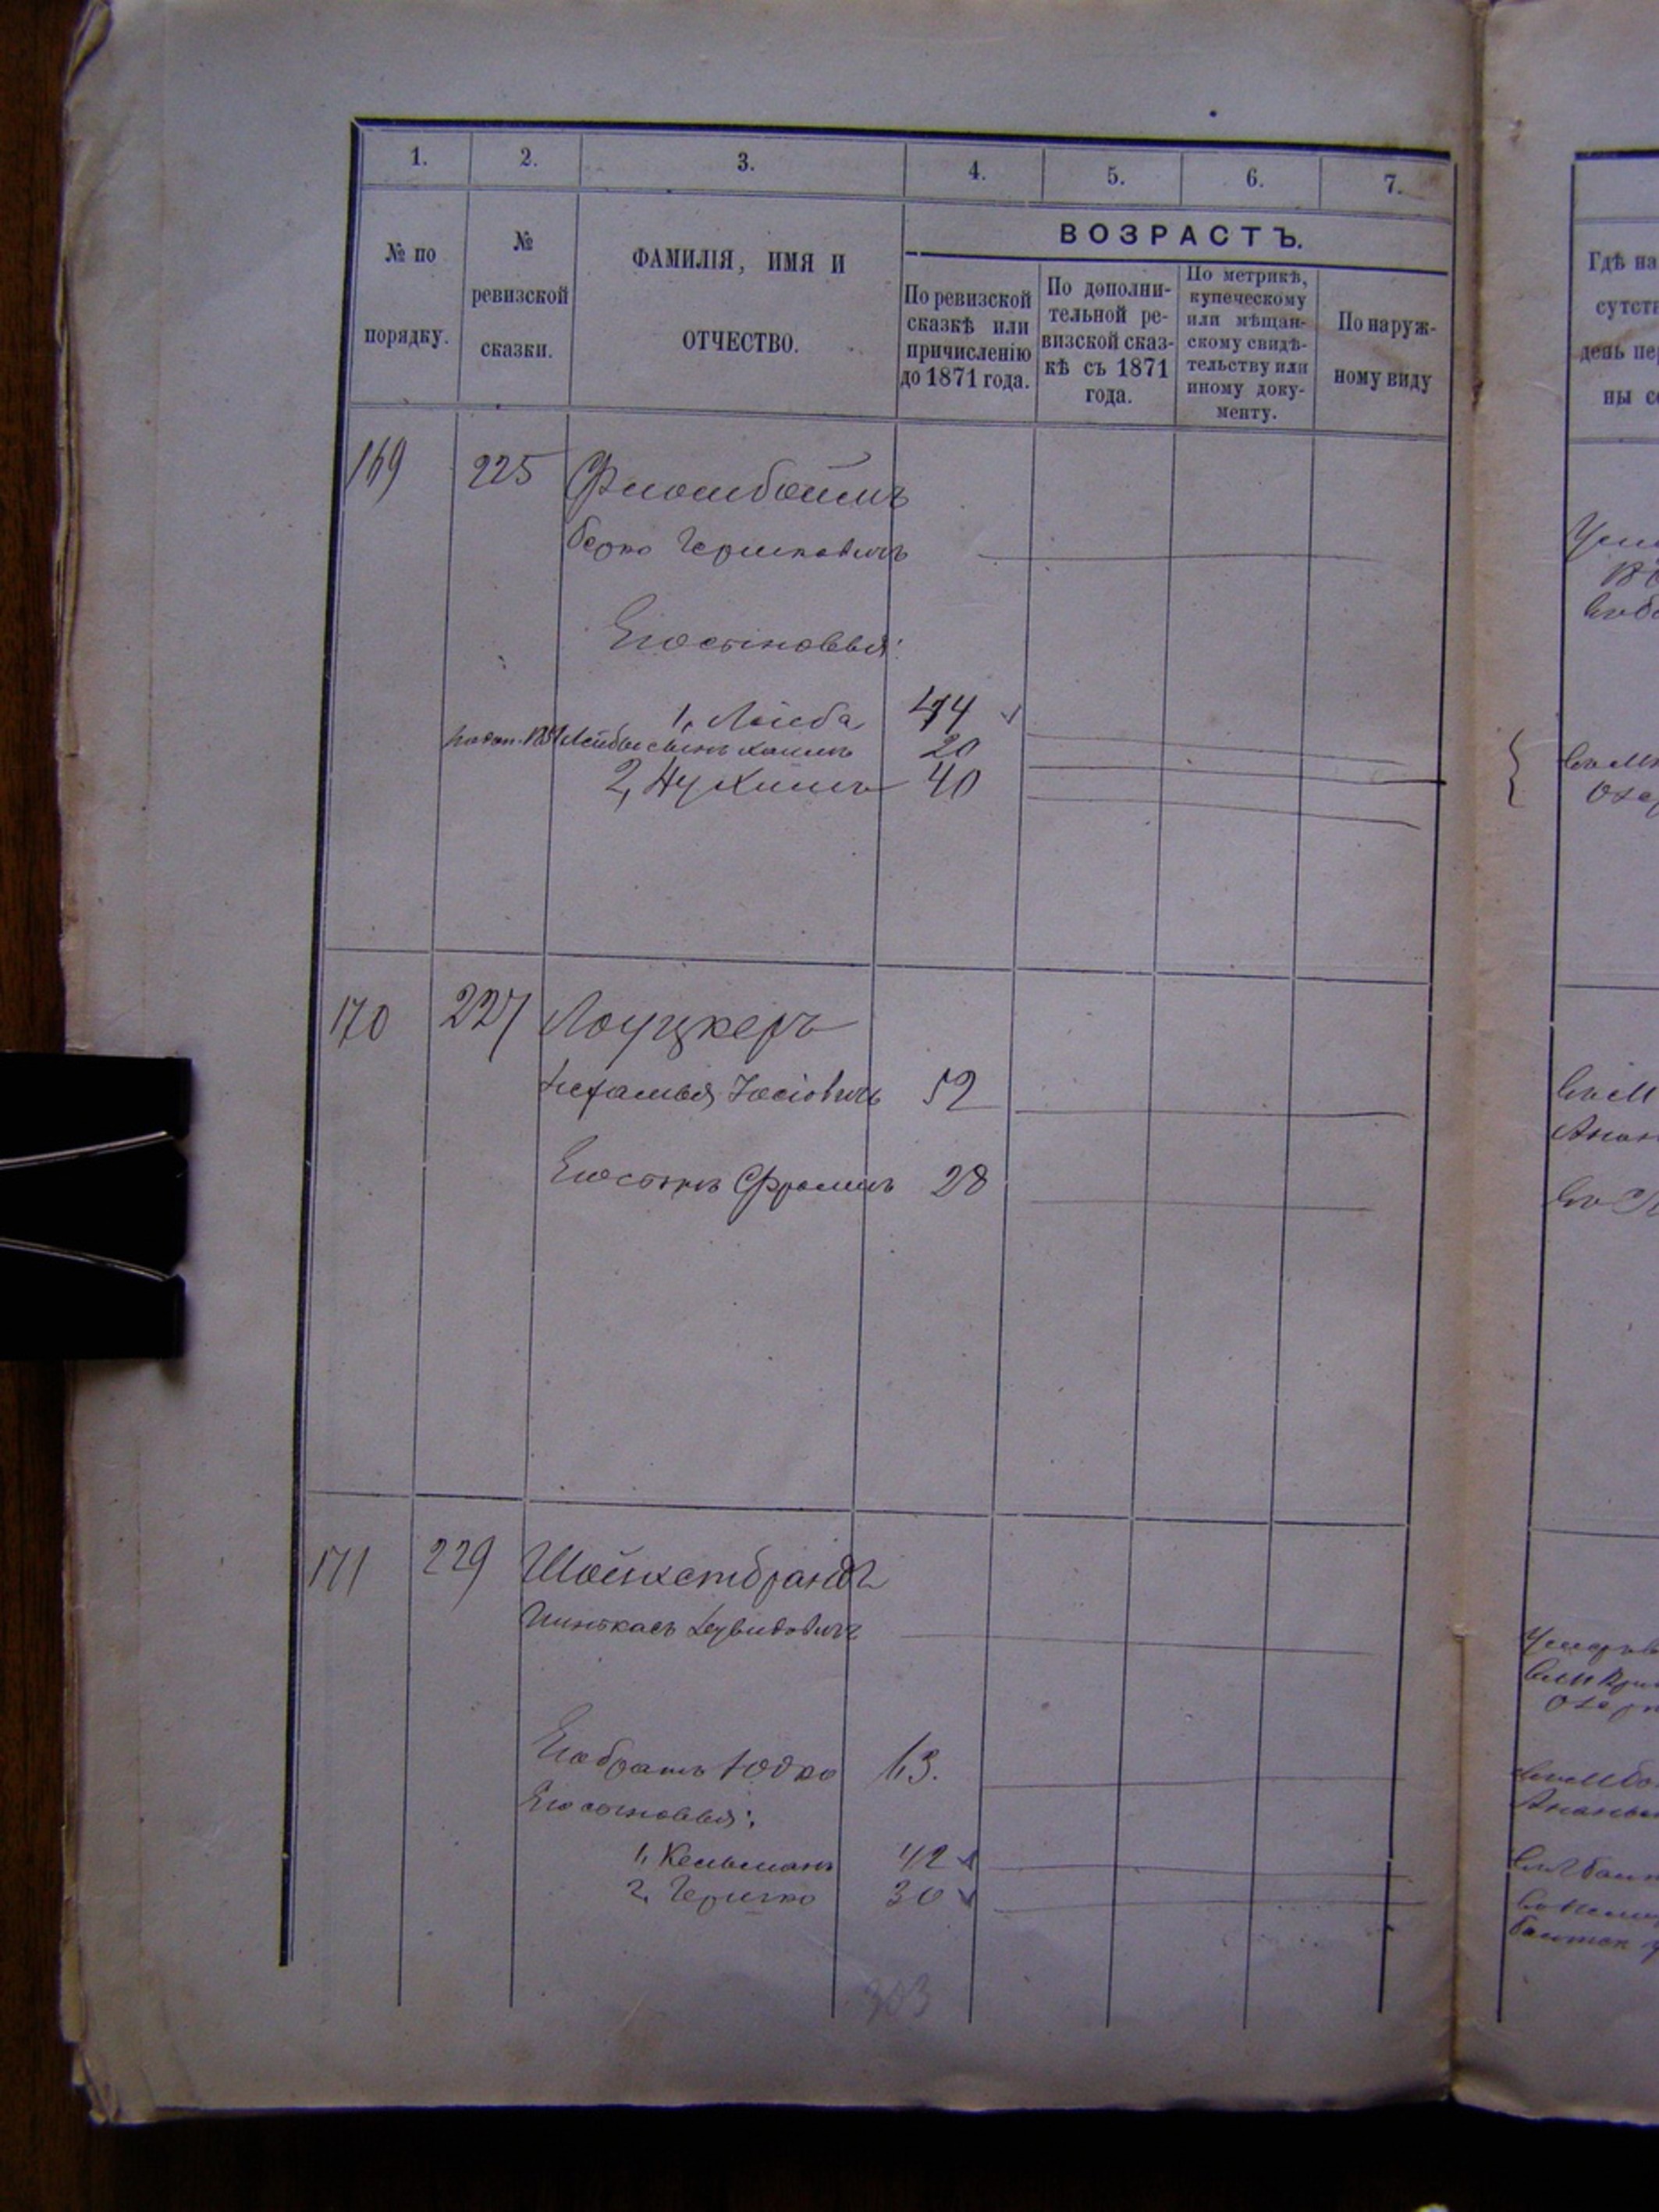 1. 2. 3. 4. 5. 6. 7.
№ по порядку.
№ ревизской сказки.
ФАМИЛІЯ, ИМЯ И ОТЧЕСТВО.
ВОЗРАСТЪ.
По ревизской
сказкѣ или
причисленію
до 1871 года.
По дополни-
тельной ре-
визской сказ-
кѣ съ 1871
года.
По метрикѣ,
купеческому
или мѣщан-
скому свидѣ-
тельству или
иному доку-
менту.
По наруж-
ному виду
Гдѣ на
сутст
день пе
ны с
169 225 Фломбоймъ
Берко Гершковичъ
Его сыновья:
1, Лейба 44
Лейбы сынъ Хаимъ 20
2, Нухимъ 40
170 227 Лоуцкеръ
Нехамья Іосіовичъ 52
Его сынъ Фроимъ 28
171 229 Шойхетбрандъ
Пинькасъ
Его братъ Юдко 63.
Его сыновья:
1, Кельманъ 42
2, Гершко 30
303